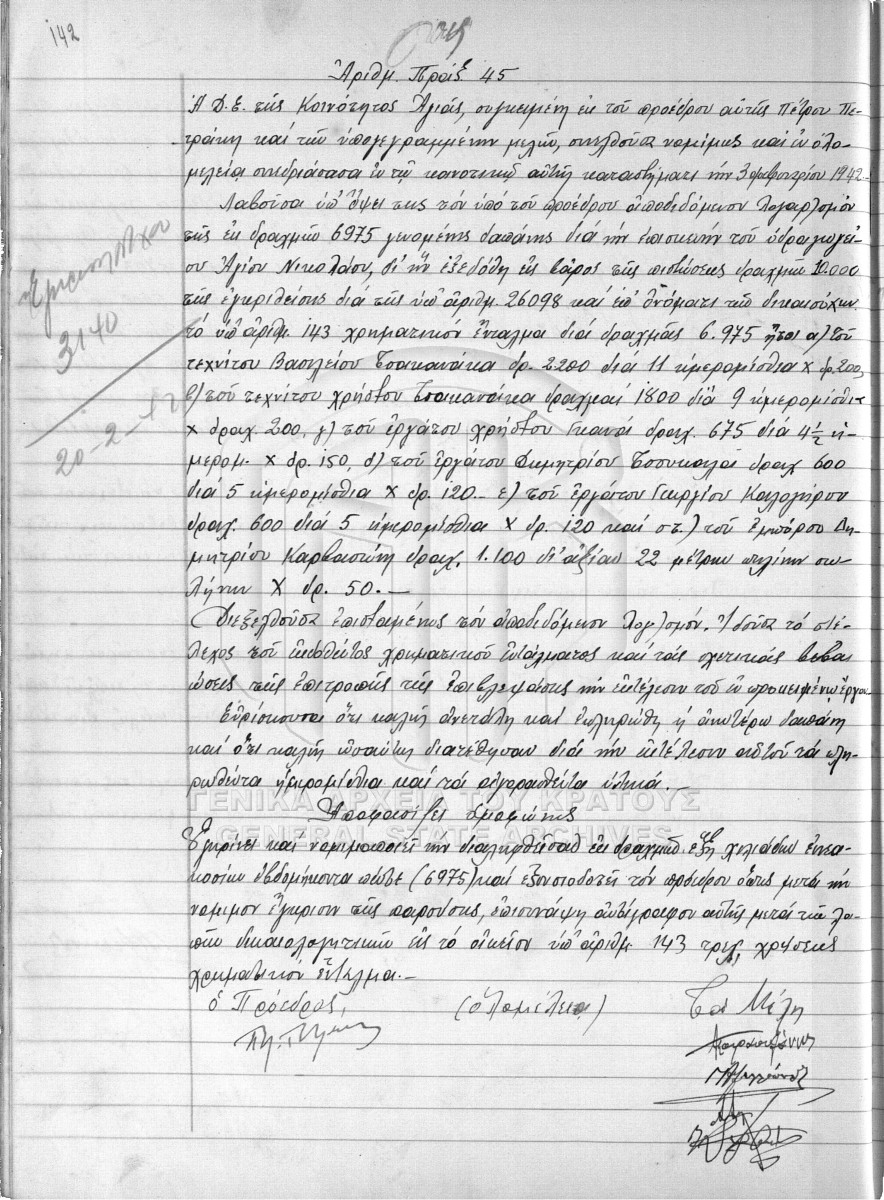 142
Ἀριθμ. Πράξ 45
Ἡ Δ.Ε. τῆς Κοινότητος Ἁγιᾶς, συγκειμένη ἐκ τοῦ προέδρου αὐτῆς Πέτρου Πε-
τράκη καί τῶν ὑπογεγραμμένων μελῶν, συνελθοῦσα νομίμως καί ἐν ὁλο-
μελείᾳ συνεδριάσασα ἐν τῷ κοινοτικῷ αὐτῆς καταστήματι τήν 3 φεβρουαρίου 1942.-
Λαβοῦσα ὑπ' ὄψει της τόν ὑπό τοῦ προέδρου ἀποδιδόμενον λογαρ/σμόν
τῆς ἐκ δραχμῶν 6975 γενομένης δαπάνης διά τήν ἐπισκευήν τοῦ ὑδραγωγεί-
ου Ἁγίου Νικολάου, δι' ἥν ἐξεδόθη εἰς βάρος τῆς πιστώσεως δραχμῶν 10.000
τῆς ἐγκριθείσης διά τῆς ὑπ' ἀριθμ. 26098 καί ἐπ' ὀνόματι τῶν δικαιούχων
τό ὑπ' ἀριθμ. 143 χρηματικόν ἔνταλμα διά δραχμάς 6.975 ἤτοι α) τοῦ
τεχνίτου Βασιλείου Τσακανάκα δρ. 2200 διά 11 ἡμερομίσθια Χ δρ. 200,
β) τοῦ τεχνίτου χρήστου Τσακανάκα δραχμαί 1800 διά 9 ἡμερομίσθια
Χ δραχ. 200, γ) τοῦ ἐργάτου χρήστου Γκανᾶ δραχ. 675 διά 4 1/2 ἡ-
μερομ. Χ δρ. 150, δ) τοῦ ἐργάτου Δημητρίου Τσουκαλᾶ δραχ 600
διά 5 ἡμερομίσθια Χ δρ. 120.- ε) τοῦ ἐργάτου Γεωργίου Καλογήρου
δραχ. 600 διά 5 ἡμερομίσθια Χ δρ. 120 καί στ.) τοῦ ἐμπόρου Δη-
μητρίου Καρβασώνη δραχ. 1.100 δι' ἀξίαν 22 μέτρων πηλίνων σω-
λήνων Χ δρ. 50.—
Διεξελθοῦσα ἐπισταμένως τόν ἀποδιδόμενον λογ/σμόν. Ἰδοῦσα τό στέ-
λεχος τοῦ ἐκδοθέντος χρηματικοῦ ἐντάλματος καί τάς σχετικάς βεβαι
ώσεις τῆς ἐπιτροπῆς τῆς ἐπιβλεψάσης τήν ἐκτέλεσιν τοῦ ἐν προκειμένῳ ἔργου.
Εὑρίσκουσα ὅτι καλῶς ἀνετέθη καί ἐπληρώθη ἡ ἀνωτέρω δαπάνη
καί ὅτι καλῶς ὡσαύτως διετέθησαν διά τήν ἐκτέλεσιν αὐτοῦ τά πλη-
ρωθέντα ἡμερομίσθια καί τά ἀγορασθέντα ὑλικά.—
Ἀποφασίζει ὁμοφώνως
Ἐγκρίνει καί νομιμοποιεῖ τήν διαληφθεῖσαν ἐκ δραχμῶν ἕξη χιλιάδων ἐννεα-
κοσίων ἑβδομήκοντα πέντε (6975) καί ἐξουσιοδοτεῖ τόν πρόεδρον ὅπως μετά τήν
νόμιμον ἔγκρισιν τῆς παρούσης, ἐπισυνάψῃ ἀντίγραφον αὐτῆς μετά τῶν λοι-
πῶν δικαιολογητικῶν εἰς τό οἰκεῖον ὑπ' ἀριθμ. 143 τρεχ. χρήσεως
χρηματικόν ἔνταλμα.—
ὁ Πρόεδρος,
(ὁλομέλεια)
Τά Μέλη
3140
20-2-42
ΓΕΝΙΚΑ ΑΡΧΕΙΑ ΤΟΥ ΚΡΑΤΟΥΣ
GENERAL STATE ARCHIVES